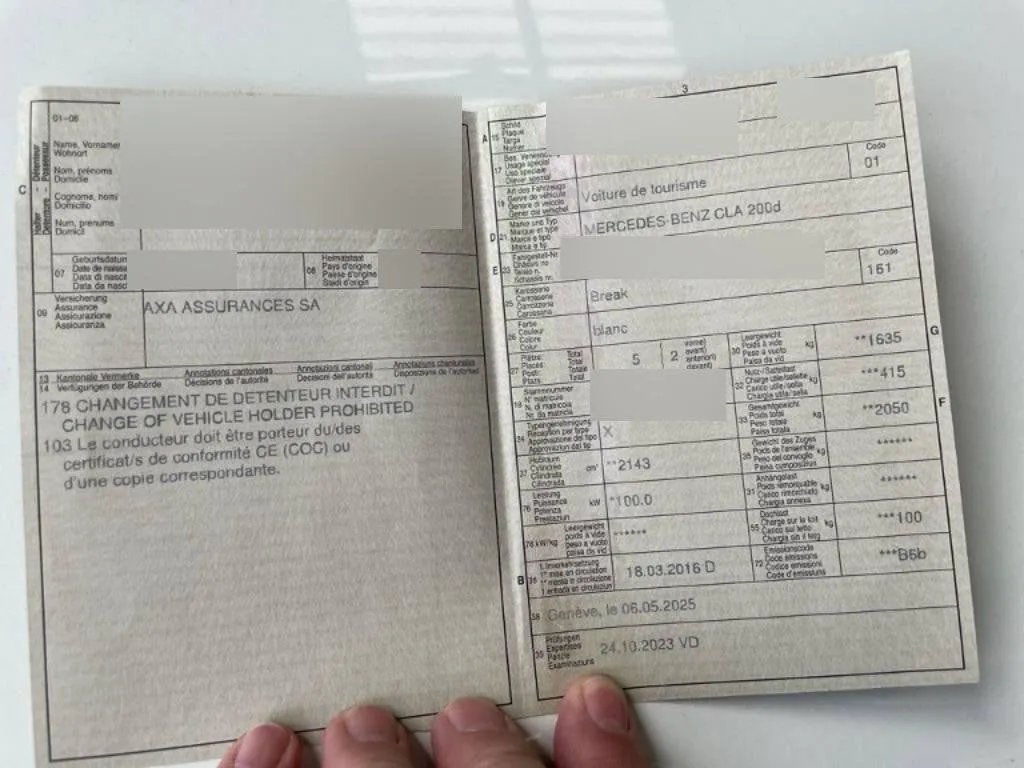 01-06
Name, Vornamen
Wohnort
Nom, prénoms
Domicile
Cognome, nomi
Domicilio
Num, prenums
Domicil
C
07
Geburtsdatum
Date de naiss
Data di nascit
Data da nasc
08
Heimatstaat
Pays d'origine
Paese d'origine
Stadi d'origin
09
Versicherung
Assurance
Assicurazione
Assicuranza
AXA ASSURANCES SA
13 Kantonale Vermerke Annotations cantonales Annotazioni cantonali Annotaziuns chantunalas
14 Verfügungen der Behörde Décisions de l'autorité Decisioni dell'autorità Disposiziuns da l'autoritad
178 CHANGEMENT DE DETENTEUR INTERDIT /
CHANGE OF VEHICLE HOLDER PROHIBITED
103 Le conducteur doit être porteur du/des
certificat/s de conformité CE (COC) ou
d'une copie correspondante.
3
A 15 Schild
Plaque
Targa
Numer
17 Bes. Verwend
Usage spécial
Uso speciale
Diever spezial
Code
01
19 Art des Fahrzeugs
Genre de véhicule
Genere di veicolo
Gener dal vehichel
Voiture de tourisme
D 21 Marke und Typ
Marque et type
Marca e tipo
Marca e tip
MERCEDES-BENZ CLA 200d
E 23 Fahrgestell-Nr.
Châssis no
Telaio n.
Schassis nr.
Code
161
25 Karosserie
Carrosserie
Carrozzeria
Carossaria
Break
26 Farbe
Couleur
Colore
Colur
blanc
27 Plätze: Total
Places: Total
Posti: Totale
Plazs: Total
5
(vorne)
avant)
anteriori)
davant)
2
30 Leergewicht
Poids à vide
Peso a vuoto
Paisa da vid
kg
**1635
G
18 Stammnummer
N° matricule
N. di matricola
Nr. da matricla
32 Nutz-/Sattellast
Charge utile/sellette
Carico utile/sella
Chargia utila/sella
kg
***415
33 Gesamtgewicht
Poids total
Peso totale
Paisa totala
kg
**2050
F
24 Typengenehmigung
Réception par type
Approvazione del tipo
Approvaziun dal tip
X
35 Gewicht des Zuges
Poids de l'ensemble
Peso del convoglio
Paisa cumposiziun
kg
******
37 Hubraum
Cylindrée
Cilindrata
Cilindrada
cm³
**2143
31 Anhängelast
Poids remorquable
Carico rimorchiato
Chargia annexa
kg
******
76 Leistung
Puissance
Potenza
Prestaziun
kW
*100.0
55 Dachlast
Charge sur le toit
Carico sul tetto
Chargia sin il tetg
kg
***100
78 kW/kg
Leergewicht
poids à vide
peso a vuoto
paisa da vid
******
72 Emissionscode
Code émissions
Codice emissioni
Code d'emissiuns
***B6b
B 36 1. Inverkehrsetzung
1re mise en circulation
1a messa in circolazione
1. entrada en circulaziun
18.03.2016 D
38 Genève, le 06.05.2025
39 Prüfungen
Expertises
Perizie
Examinaziuns
24.10.2023 VD